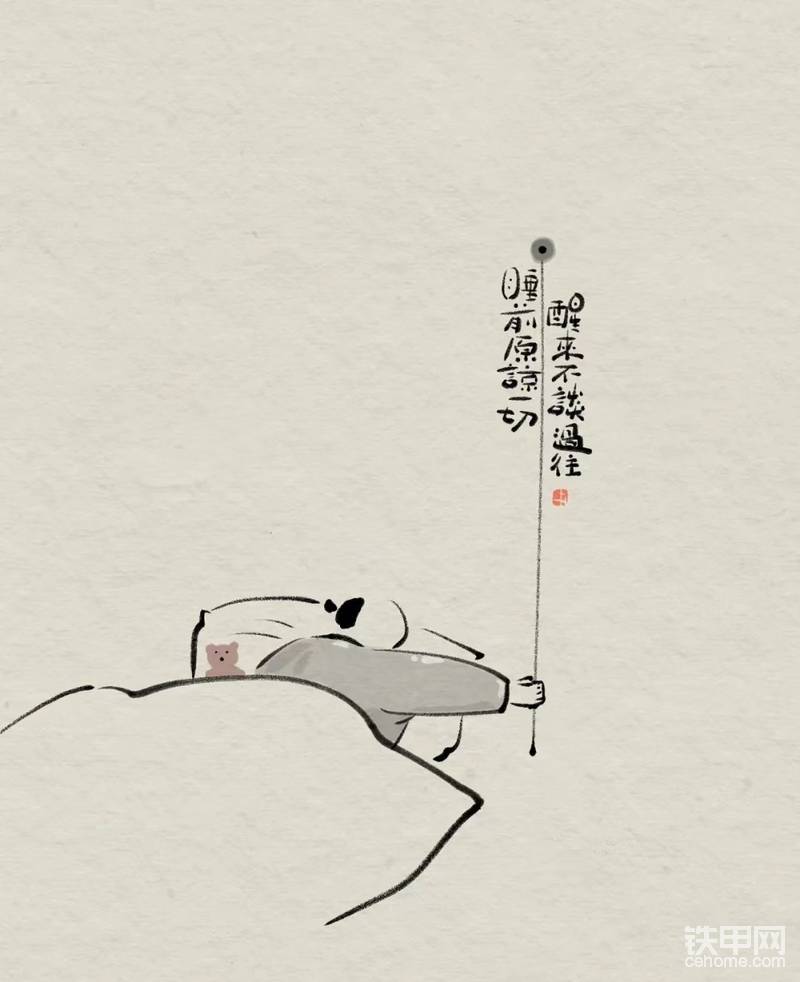 睡前原諒一切
醒來不談過往
铁甲网
cehome.com